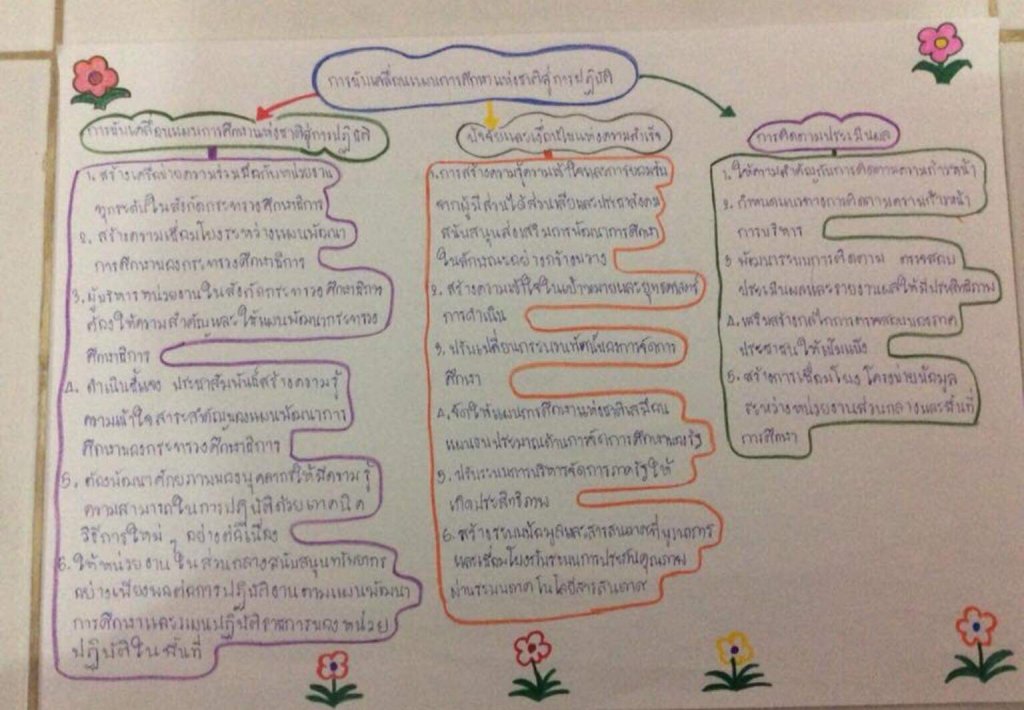 การขับเคลื่อนแผนการศึกษาแห่งชาติสู่การปฏิบัติ
การขับเคลื่อนแผนการศึกษาแห่งชาติสู่การปฏิบัติ
1. สร้างเครือข่ายความร่วมมือกับหน่วยงาน
ทุกระดับในสังกัดกระทรวงศึกษาธิการ
2. สร้างความเชื่อมโยงระหว่างแผนพัฒนา
การศึกษาของกระทรวงศึกษาธิการ
3. ผู้บริหารหน่วยงานในสังกัดกระทรวงศึกษาธิการ
ต้องให้ความสำคัญและใช้แผนพัฒนากระทรวง
ศึกษาธิการ
4. ดำเนินชี้แจง ประชาสัมพันธ์สร้างความรู้
ความเข้าใจสาระสำคัญของแผนพัฒนาการ
ศึกษาของกระทรวงศึกษาธิการ
5. ต้องพัฒนาศักยภาพของบุคลากรให้มีความรู้
ความสามารถในการปฏิบัติด้วยเทคนิค
วิธีการใหม่ ๆ อย่างต่อเนื่อง
6. ให้หน่วยงานในส่วนกลางสนับสนุนทรัพยากร
อย่างเพียงพอต่อการปฏิบัติงานตามแผนพัฒนา
การศึกษาและแผนปฏิบัติราชการของหน่วย
ปฏิบัติในพื้นที่
ปัจจัยและเงื่อนไขแห่งความสำเร็จ
1. การสร้างความรู้ความเข้าใจและการยอมรับ
จากผู้มีส่วนได้ส่วนเสียและประชาสังคม
สนับสนุนส่งเสริมการพัฒนาการศึกษา
ในลักษณะอย่างกว้างขวาง
2. สร้างความเข้าใจในเป้าหมายและยุทธศาสตร์
การดำเนิน
3. ปรับเปลี่ยนกระบวนทัศน์ของการจัดการ
ศึกษา
4. จัดให้แผนการศึกษาแห่งชาติเสมือน
แผนงบประมาณด้านการจัดการศึกษาของรัฐ
5. ปรับระบบการบริหารจัดการภาครัฐให้
เกิดประสิทธิภาพ
6. สร้างระบบข้อมูลและสารสนเทศที่บูรณาการ
และเชื่อมโยงกับระบบการประกันคุณภาพ
ผ่านระบบเทคโนโลยีสารสนเทศ
การติดตามประเมินผล
1. ให้ความสำคัญกับการติดตามความก้าวหน้า
2. กำหนดแนวทางการติดตามความก้าวหน้า
การบริหาร
3 พัฒนาระบบการติดตาม ตรวจสอบ
ประเมินผลและรายงานผลให้มีประสิทธิภาพ
4. เสริมสร้างกลไกการตรวจสอบของภาค
ประชาชนให้เข้มแข็ง
5. สร้างการเชื่อมโยง โครงข่ายข้อมูล
ระหว่างหน่วยงานส่วนกลางและพื้นที่
การศึกษา